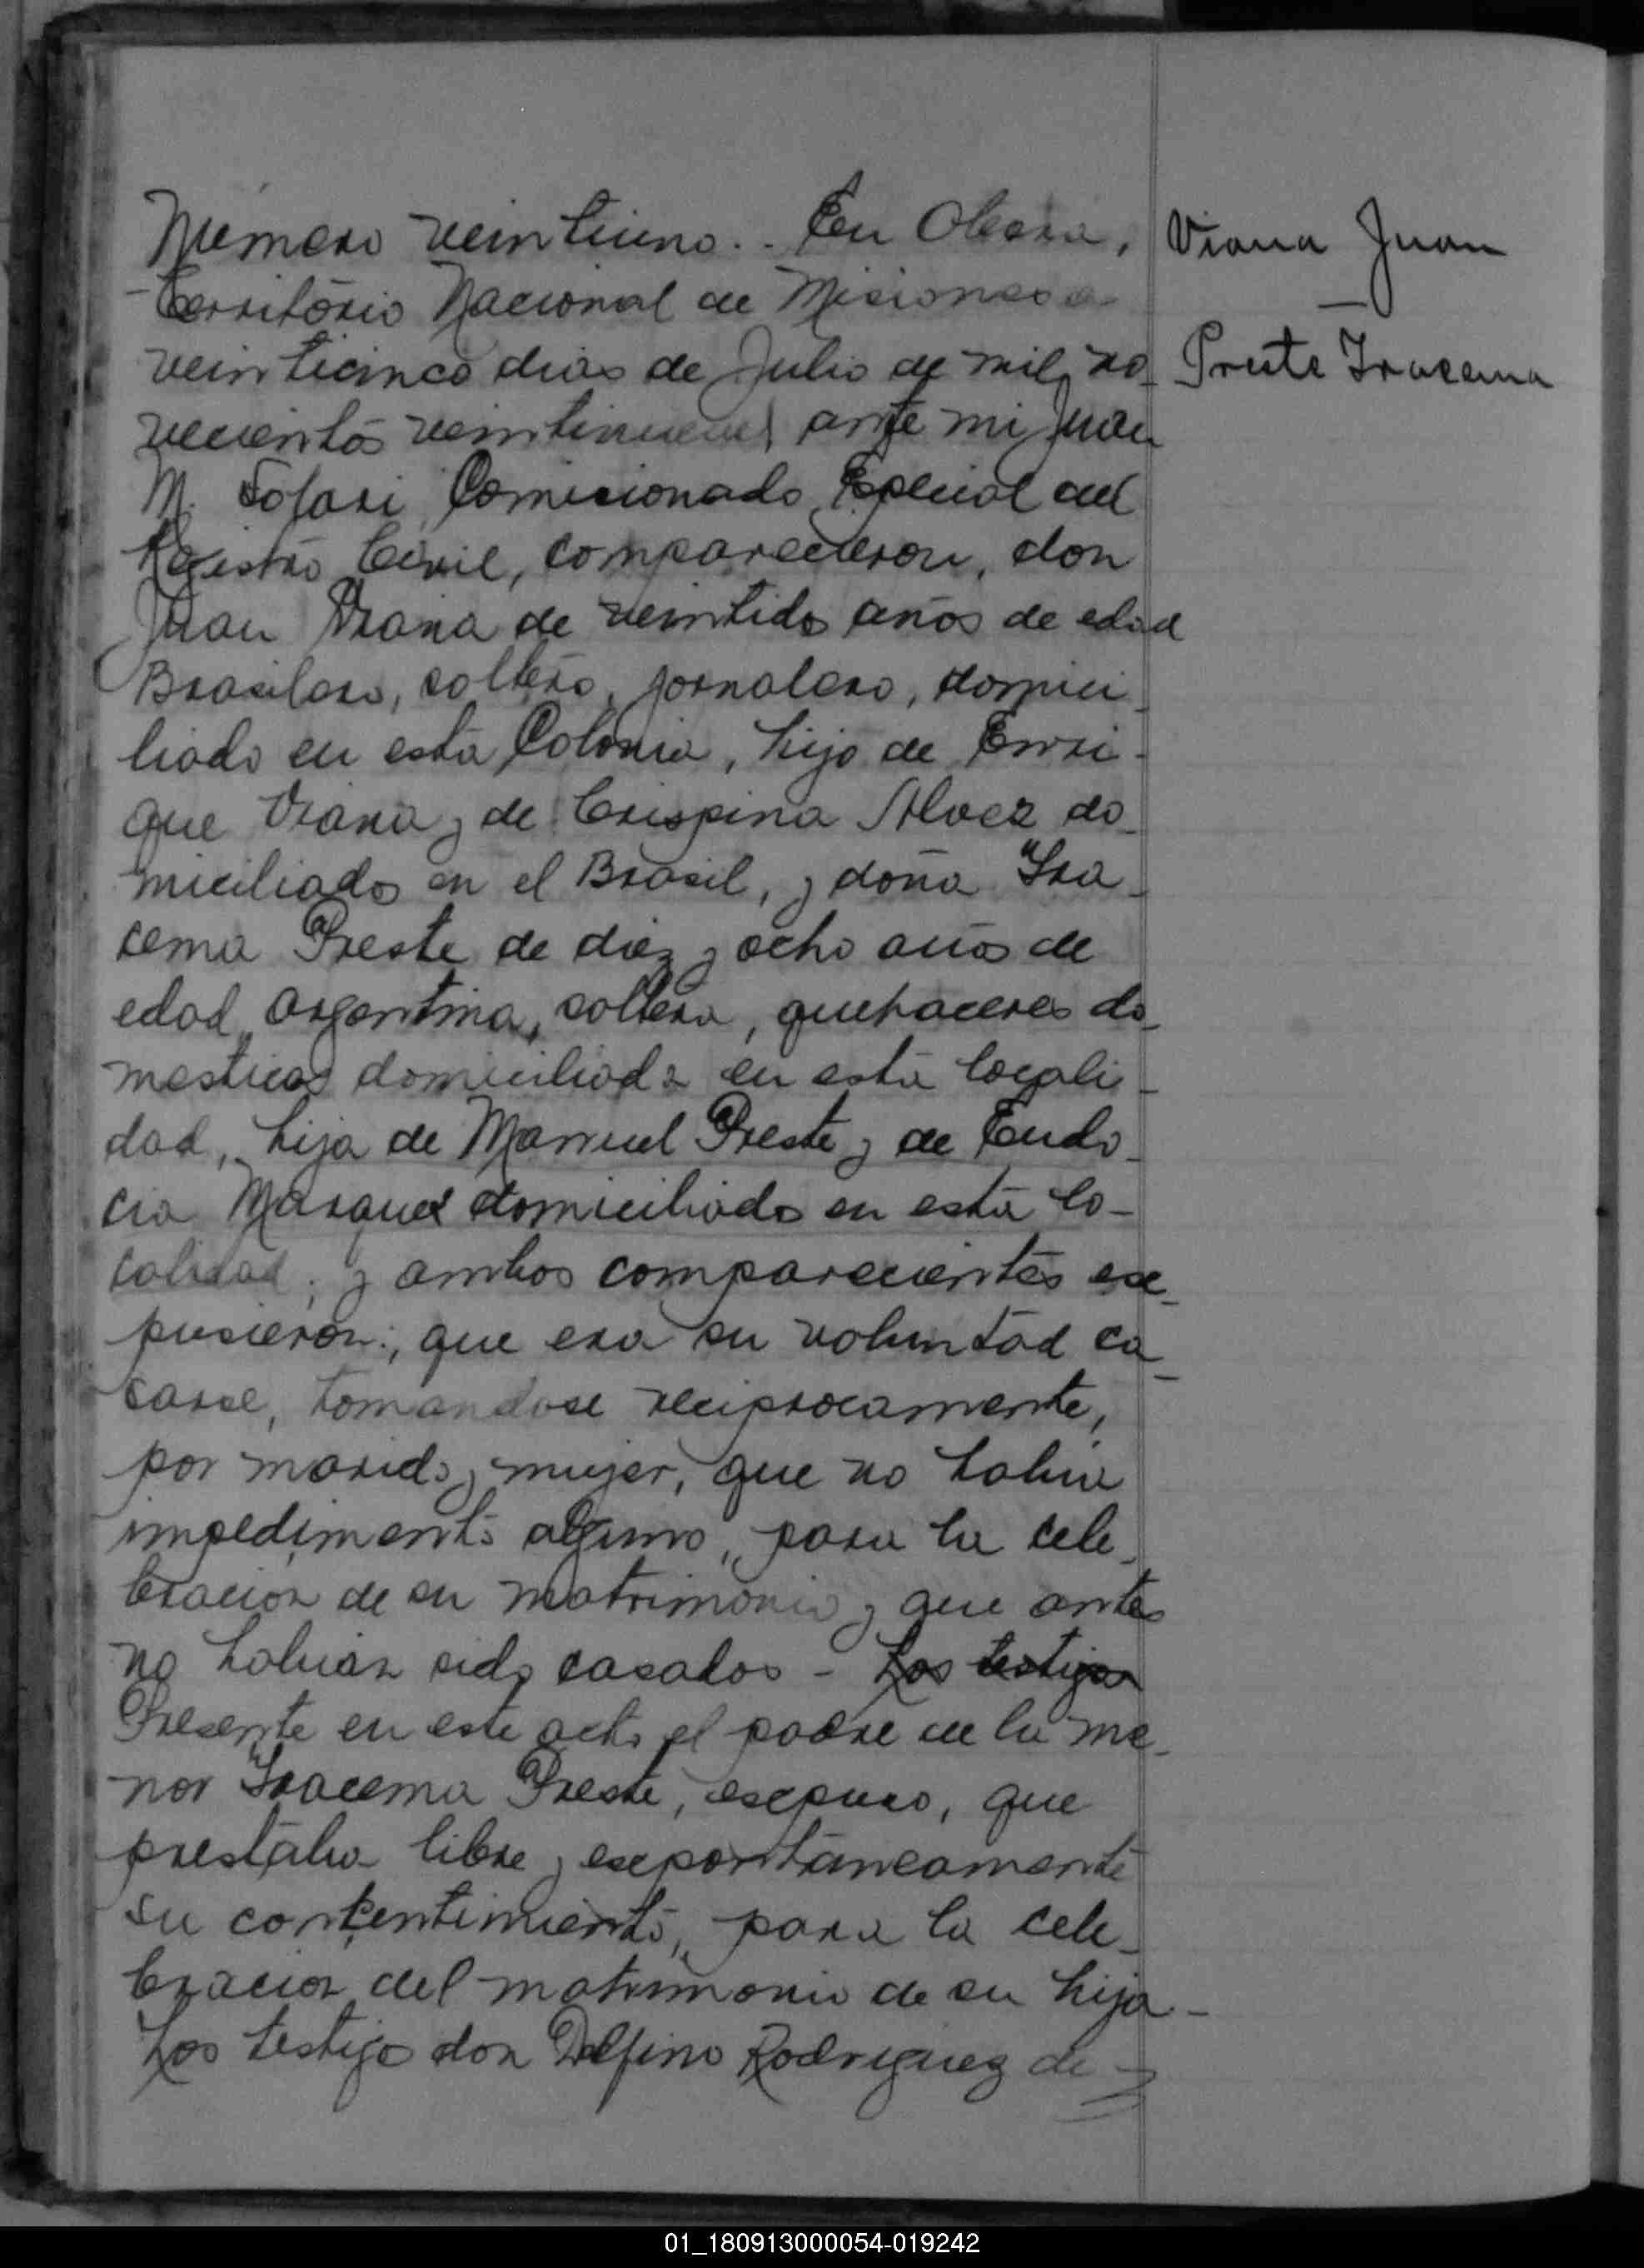 Número veintiuno.. En Obera,
Território Nacional de Misiones a
veinticinco dias de Julio de mil no_
vecientos veintinueve, ante mi Juan
M. Comisionado Especial del
Registro Civil, comparecieron, don
Juan Viana de veintidos años de edad
Brasilero, soltero, jornalero, domici_
liado en esta Colonia, hijo de Enri-
que Viana y de Crispina Alvez do_
miciliados en el Brasil, y doña Ira_
cema Preste de diez y ocho años de
edad, argentina, soltera, quehaceres do_
mesticos domiciliada en esta locali_
dad, hija de Manuel Preste y de Eudo_
cia Marquez domiciliados en esta lo-
calidad; y ambos comparecientes ex_
pusieron:, que era su voluntad ca_
sarse, tomandose reciprocamente,
por marido y mujer, que no habia
impedimento alguno, para la cele_
bracion de su matrimonio y que antes
no habian sido casados - Los testigos
Presente en este acto el padre de la me_
nor Iracema Preste, expuso, que
prestaba libre y expontáneamente
su consentimiento, para la cele_
bracion del matrimonio de su hija -
Los testigo don Delfino Rodriguez de
Viana Juan
—
Preste Iracema
01_180913000054-019242